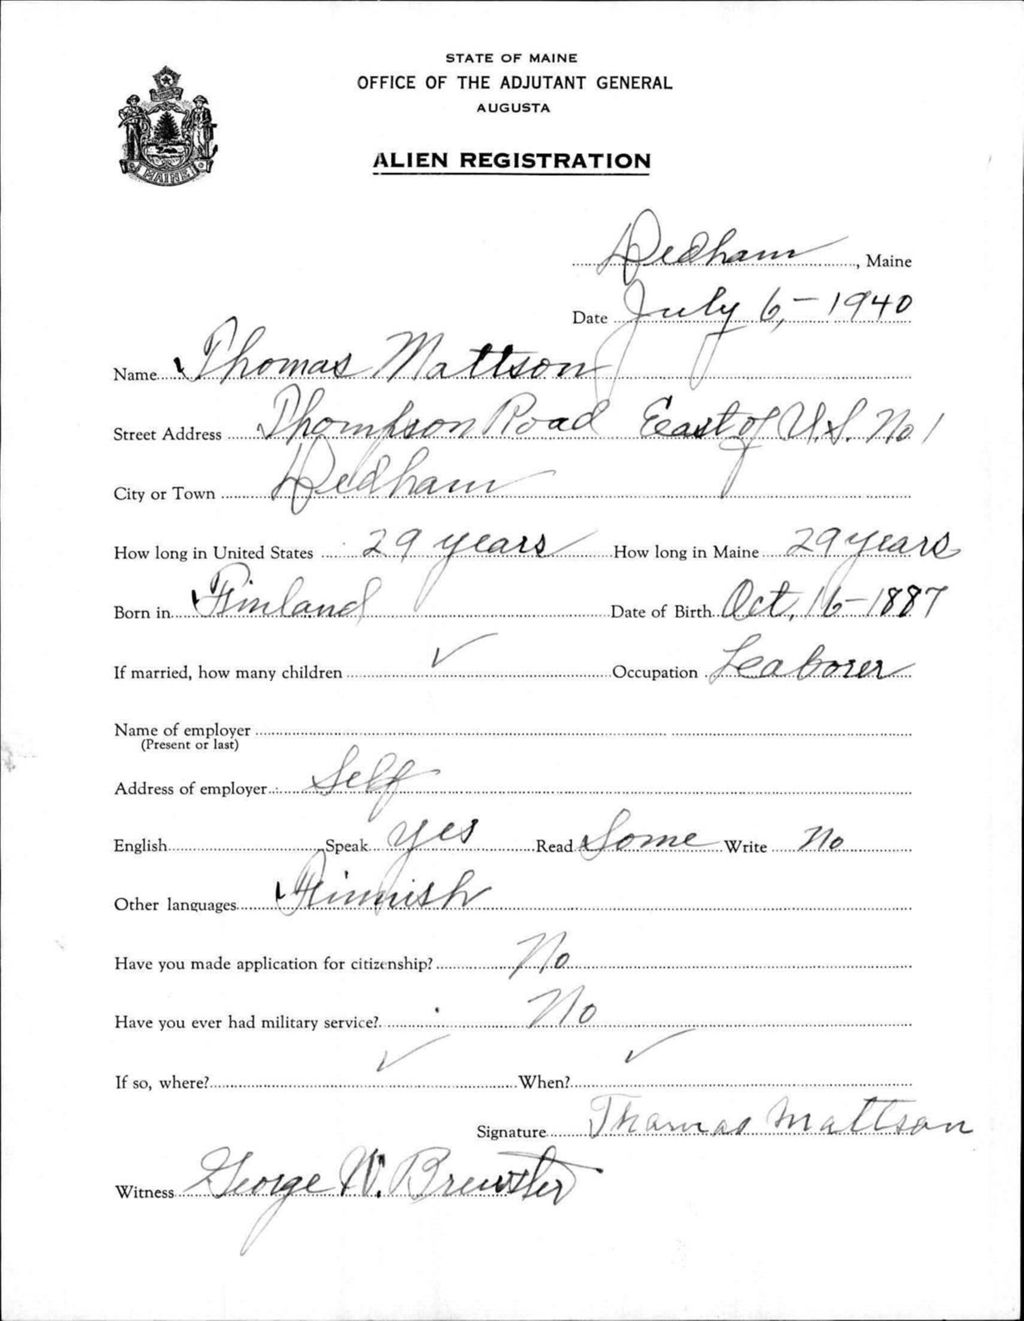 STATE OF MAINE
OFFICE OF THE ADJUTANT GENERAL
AUGUSTA
ALIEN REGISTRATION
MAINE
Dedham, Maine
Date July 6, - 1940
Name Thomas Mattson
Street Address Thompson Road East of U.S. No 1
City or Town Dedham
How long in United States 29 years How long in Maine 29 years
Born in Finland Date of Birth Oct. 16 - 1887
If married, how many children ✓ Occupation Leaborer
Name of employer
(Present or last)
Address of employer Self
English Speak Yes Read Some Write No
Other languages Finnish
Have you made application for citizenship? No
Have you ever had military service? No
If so, where? ✓ When? ✓
Signature Thomas Mattson
Witness George W. Brewster